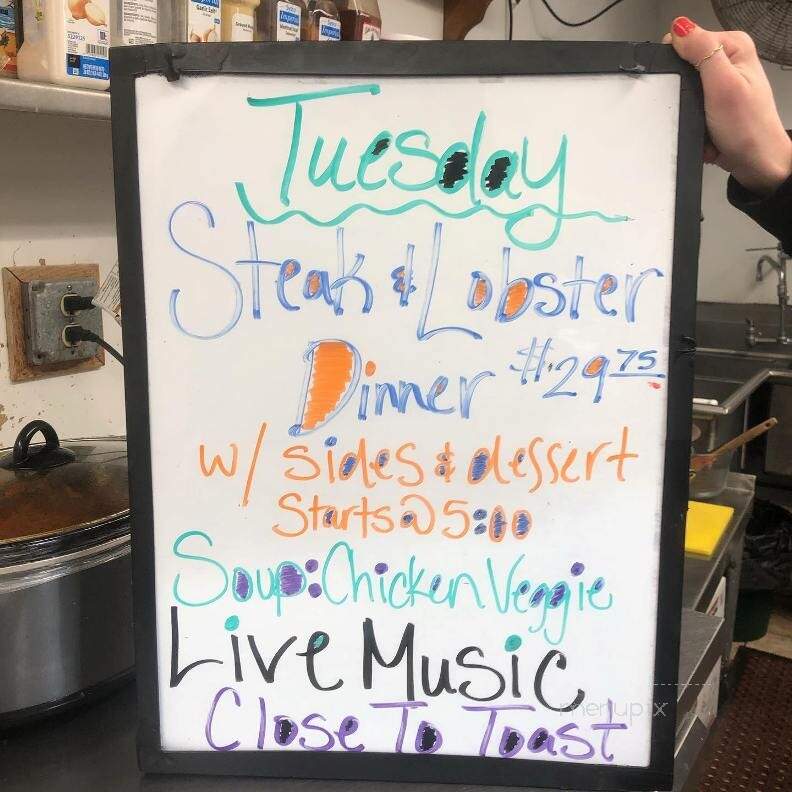 Tuesday
Steak & Lobster
Dinner $29.75
w/ sides & dessert
Starts @ 5:00
Soup: Chicken Veggie
Live Music
Close To Toast
menupix